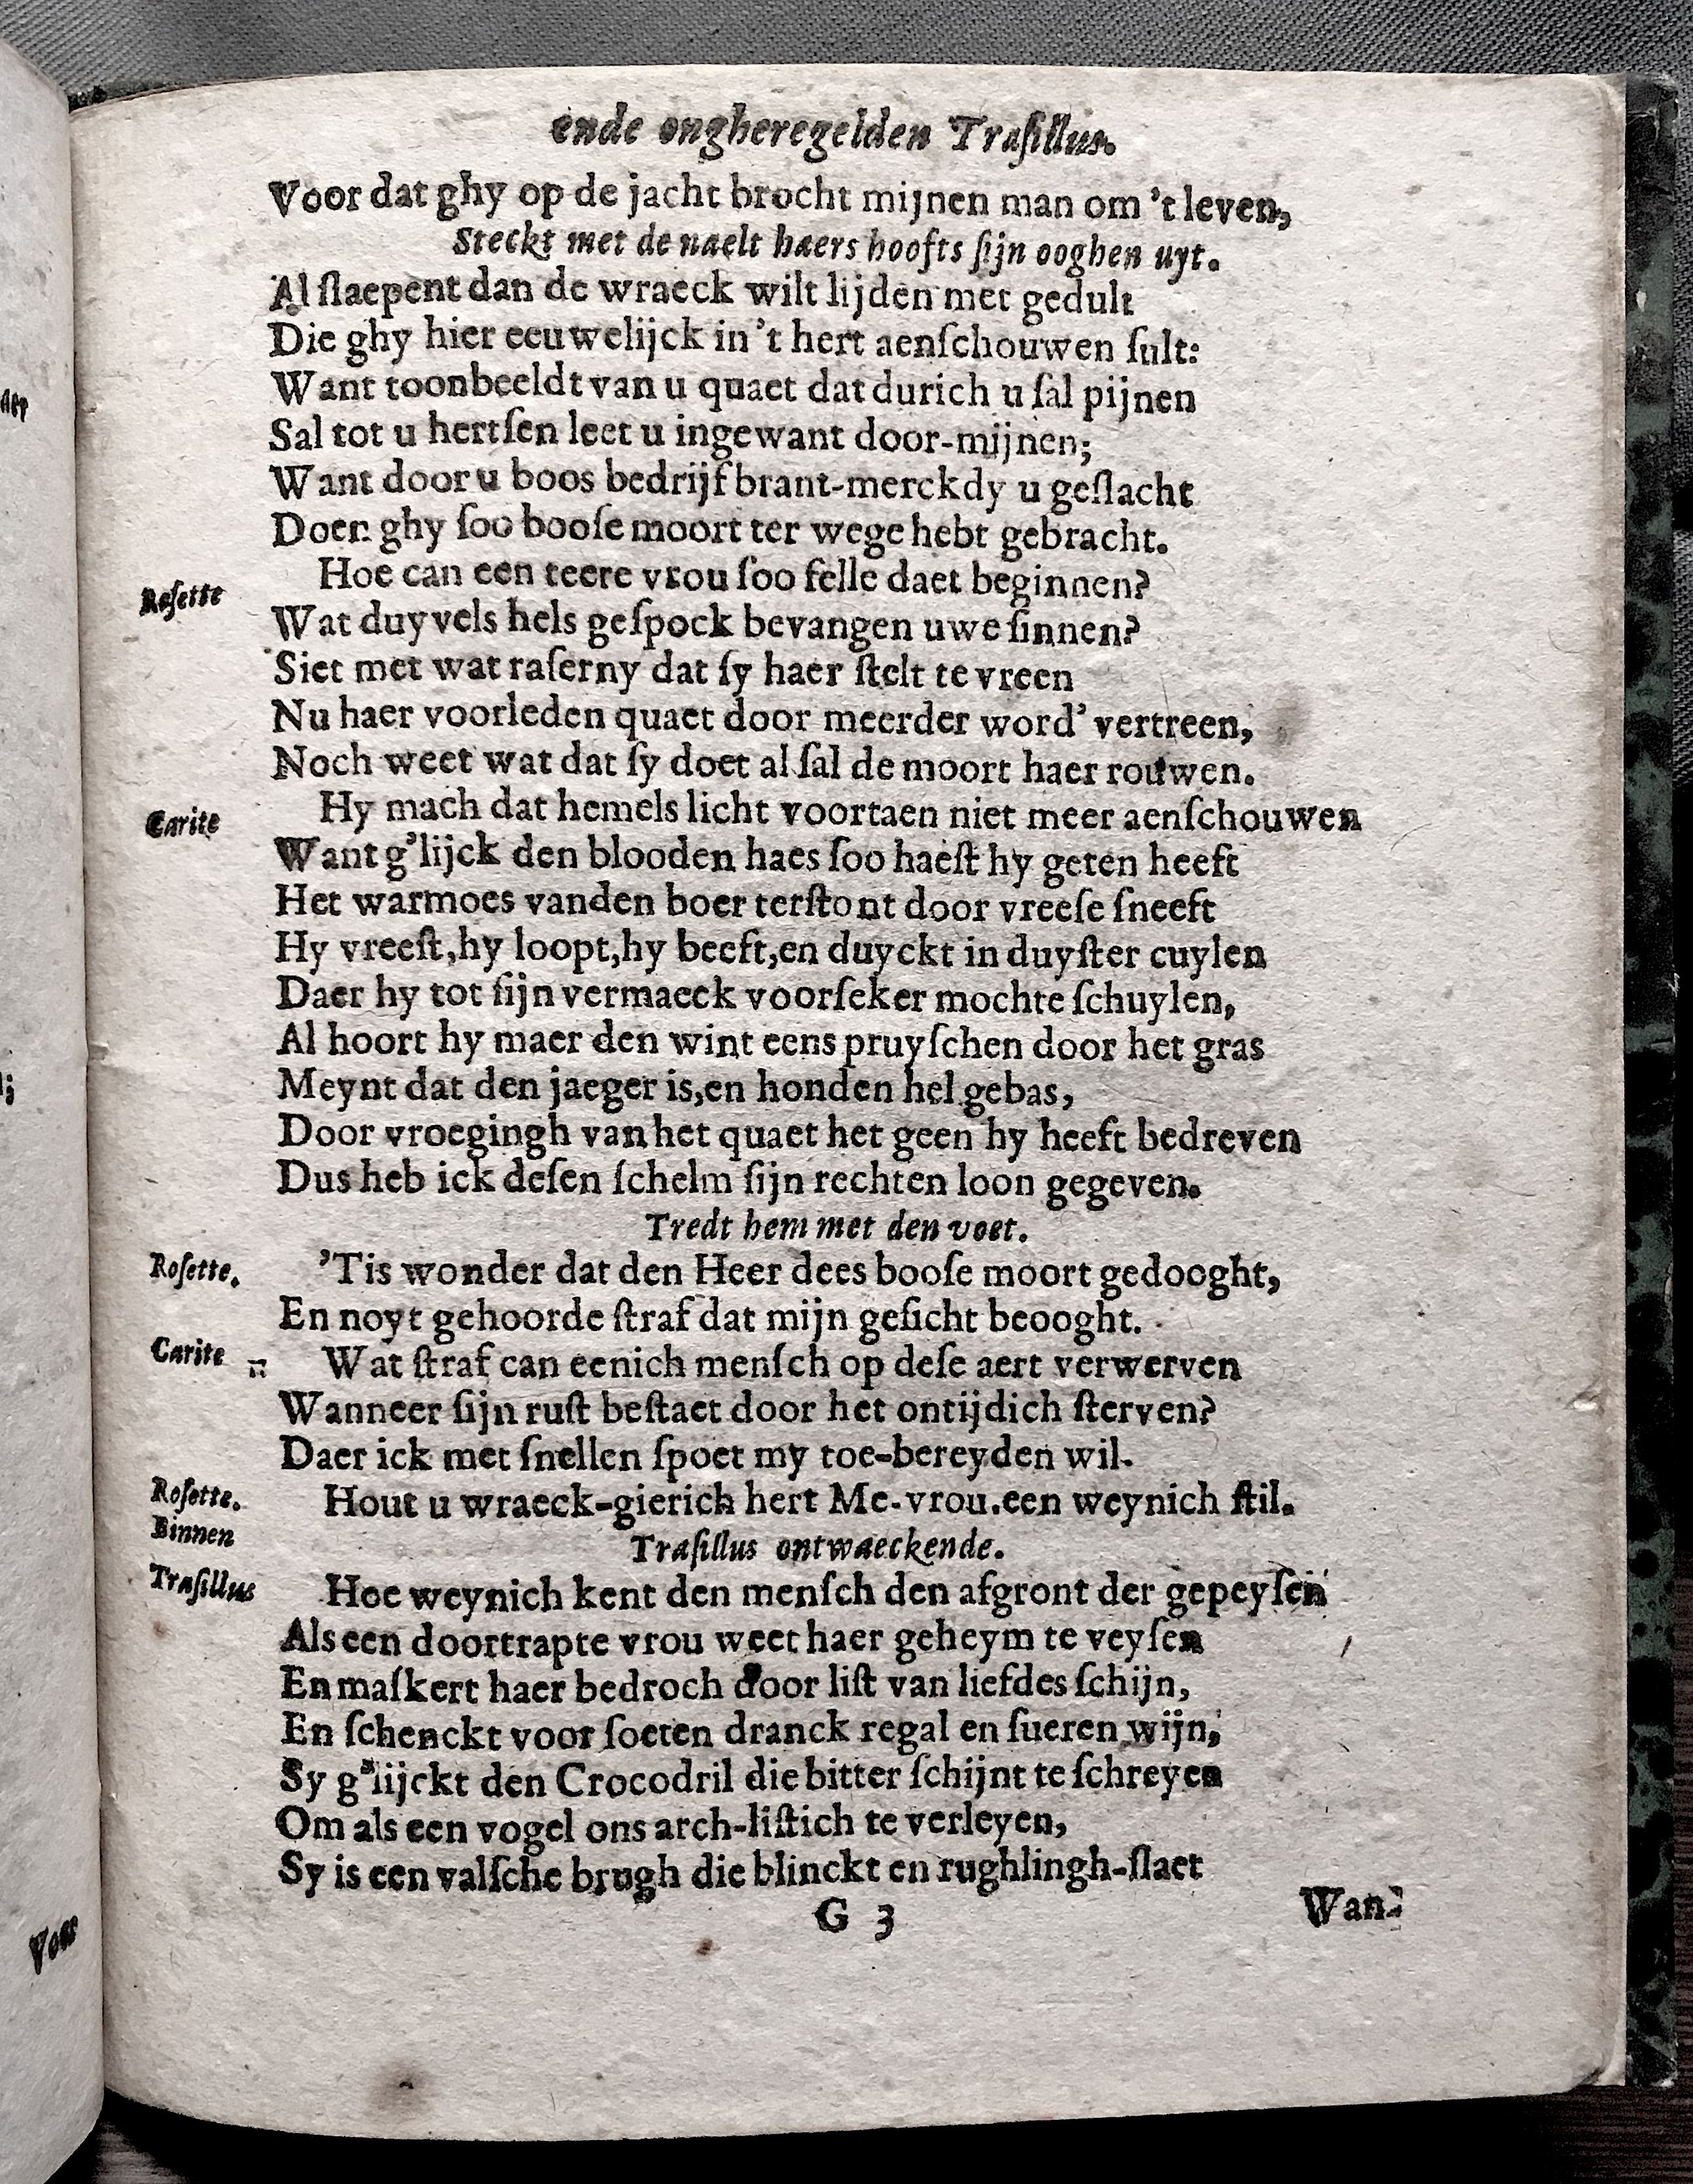 ende ongheregelden Traſillus.
Voor dat ghy op de jacht brocht mijnen man om 't leven,
Steckt met de naelt haers hoofts ſijn ooghen uyt.
Al ſlaepent dan de wraeck wilt lijden met gedult
Die ghy hier eeuwelijck in 't hert aenſchouwen ſult:
Want toonbeeldt van u quaet dat durich u ſal pijnen
Sal tot u hertſen leet u ingewant door-mijnen;
Want door u boos bedrijf brant-merckdy u geſlacht
Doen ghy ſoo booſe moort ter wege hebt gebracht.
Roſette Hoe can een teere vrou ſoo felle daet beginnen?
Wat duyvels hels geſpock bevangen uwe ſinnen?
Siet met wat raſerny dat ſy haer ſtelt te vreen
Nu haer voorleden quaet door meerder word' vertreen,
Noch weet wat dat ſy doet al ſal de moort haer rouwen.
Carite Hy mach dat hemels licht voortaen niet meer aenſchouwen
Want g'lijck den blooden haes ſoo haeſt hy geten heeft
Het warmoes vanden boer terſtont door vreeſe ſneeft
Hy vreeſt, hy loopt, hy beeft, en duyckt in duyſter cuylen
Daer hy tot ſijn vermaeck voorſeker mochte ſchuylen,
Al hoort hy maer den wint eens pruyſchen door het gras
Meynt dat den jaeger is, en honden hel gebas,
Door vroegingh van het quaet het geen hy heeft bedreven
Dus heb ick deſen ſchelm ſijn rechten loon gegeven.
Tredt hem met den voet.
Roſette. 'Tis wonder dat den Heer dees booſe moort gedooght,
En noyt gehoorde ſtraf dat mijn geſicht beooght.
Carite Wat ſtraf can eenich menſch op deſe aert verwerven
Wanneer ſijn ruſt beſtaet door het ontijdich ſterven?
Daer ick met ſnellen ſpoet my toe-bereyden wil.
Roſette. Hout u wraeck-gierich hert Me-vrou. een weynich ſtil.
Binnen Traſillus ontwaeckende.
Traſillus Hoe weynich kent den menſch den afgront der gepeyſen
Als een doortrapte vrou weet haer geheym te veyſen
En maſkert haer bedroch door liſt van liefdes ſchijn,
En ſchenckt voor ſoeten dranck regal en ſueren wijn,
Sy g'lijckt den Crocodril die bitter ſchijnt te ſchreyen
Om als een vogel ons arch-liſtich te verleyen,
Sy is een valſche brugh die blinckt en rughlingh-ſlaet
G 3 Wan-
Voor